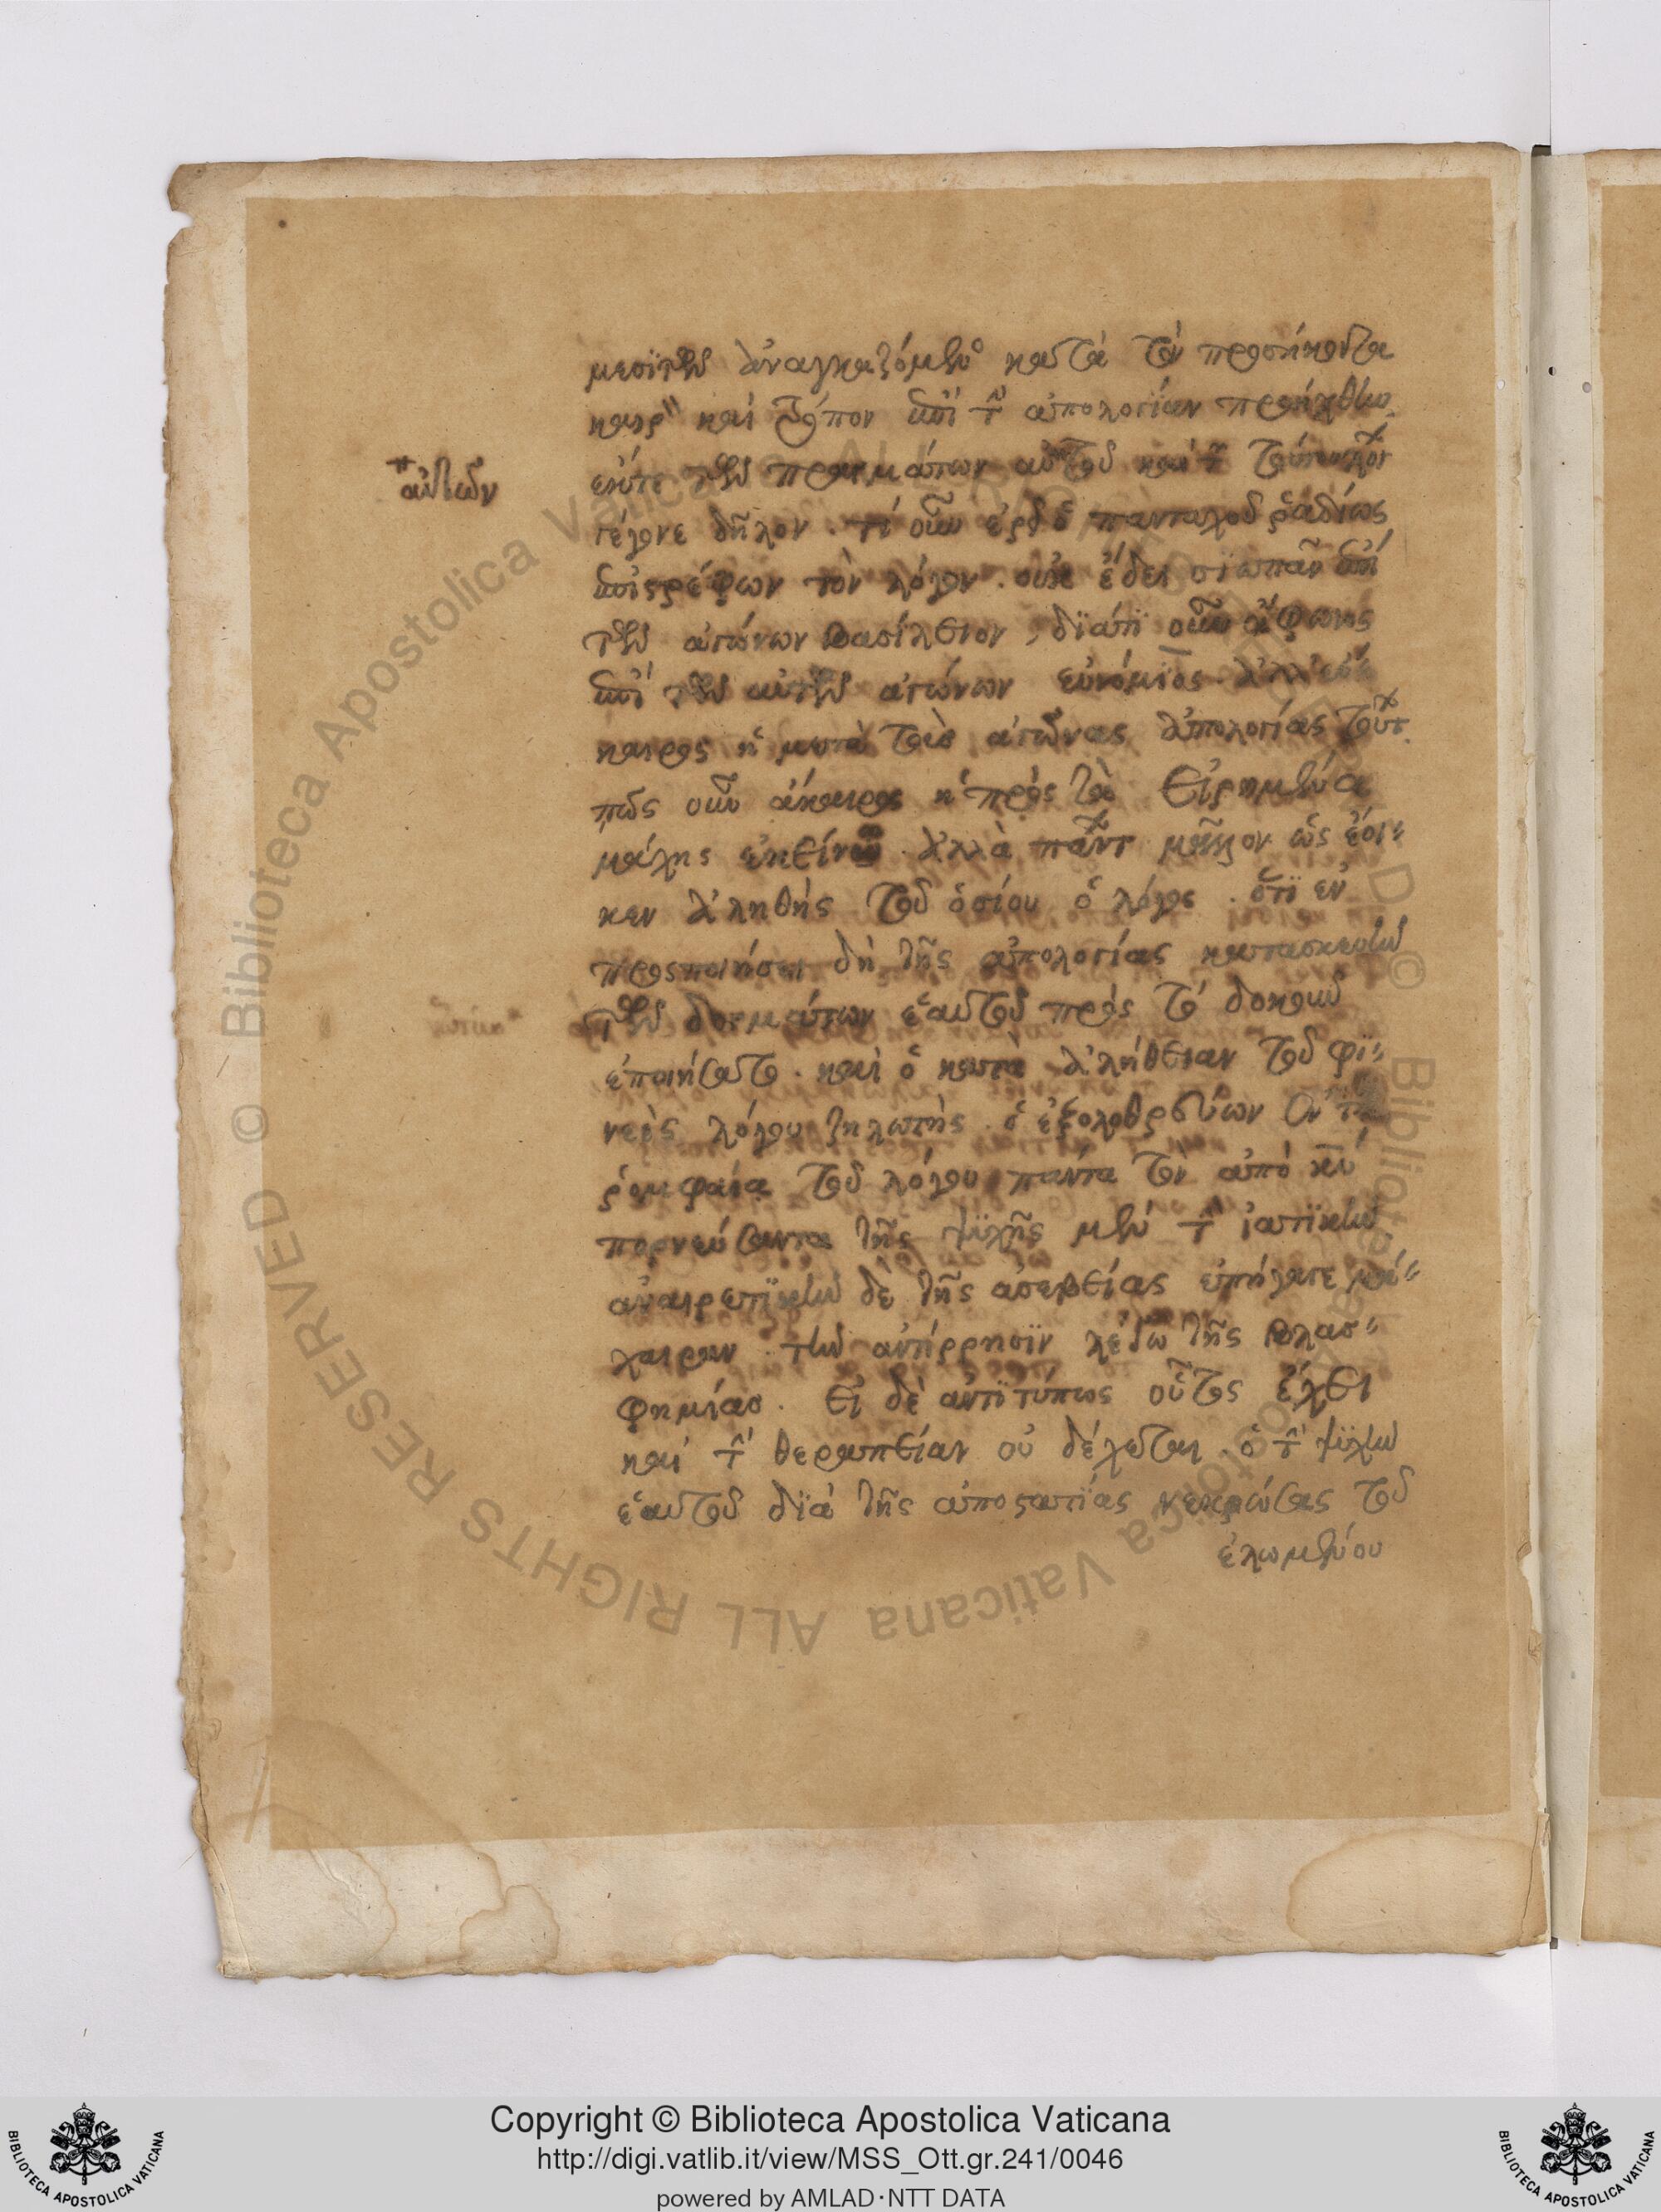 μεσιτῶν ἀναγκαζόμενος κατὰ τὸν προσήκοντα
καιρὸν καὶ τρόπον ἐπὶ τὴν ἀπολογίαν προήχθην
αὐτῶν
ἐκ τε τῶν πραγμάτων αὐτοῦ καὶ τῶν
γέγονε δῆλον. τί οὖν ἐρεῖ ὁ πανταχοῦ ῥαδίως
ἐπιστρέφων τὸν λόγον. οὐκ ἔδει σιωπᾶν ἐπὶ
τῶν ἀγώνων βασίλειον, διατί οὖν ἄφωνος
ἐπὶ τῶν αὐτῶν ἀγώνων εὐνόμιος.
καιρος ἡ μετὰ τοὺς ἀγῶνας ἀπολογίας τούτ
πῶς οὖν ἄκαιρος ἡ πρὸς τὰ εἰρημένα
μάχης ἐκείνω. ἀλλὰ μᾶλλον ὡς ἔοι-
κεν ἀληθὴς τοῦ ὁσίου ὁ λόγος. ὅτι ἐν
προσποιήσει δὴ τῆς ἀπολογίας κατασκευὴν
τῶν δογμάτων ἑαυτοῦ πρὸς τὸ δοκοῦν
ἐποιήσατο. καὶ ὁ κατὰ ἀλήθειαν τοῦ φι-
νεὲς λόγου ζηλωτὴς. ὁ ἐξολοθρεύων ἐν τῇ
ῥομφαία τοῦ λόγου πάντα τὸν ἀπὸ κυ
πορνεύσαντα τῆς ψυχῆς μὲν τὴν ἰατικὴν
ἀναιρετικὴν δὲ τῆς ἀσεβείας ἐπήγαγε μά-
χαιραν. τὴν ἀντίρρησιν λέγω τῆς βλασ-
φημίας. εἰ δὲ ἀντιτύπως οὗτος ἔχει
καὶ τὴν θεραπείαν οὐ δέχεται. ὁ τὴν ψυχὴν
ἑαυτοῦ διὰ τῆς ἀποστασίας νεκρώσας τοῦ
ἑλομένου
Copyright © Biblioteca Apostolica Vaticana
http://digi.vatlib.it/view/MSS_Ott.gr.241/0046
powered by AMLAD·NTT DATA
© Biblioteca Apostolica Vaticana ALL RIGHTS RESERVED
BIBLIOTECA APOSTOLICA VATICANA
BIBLIOTECA APOSTOLICA VATICANA